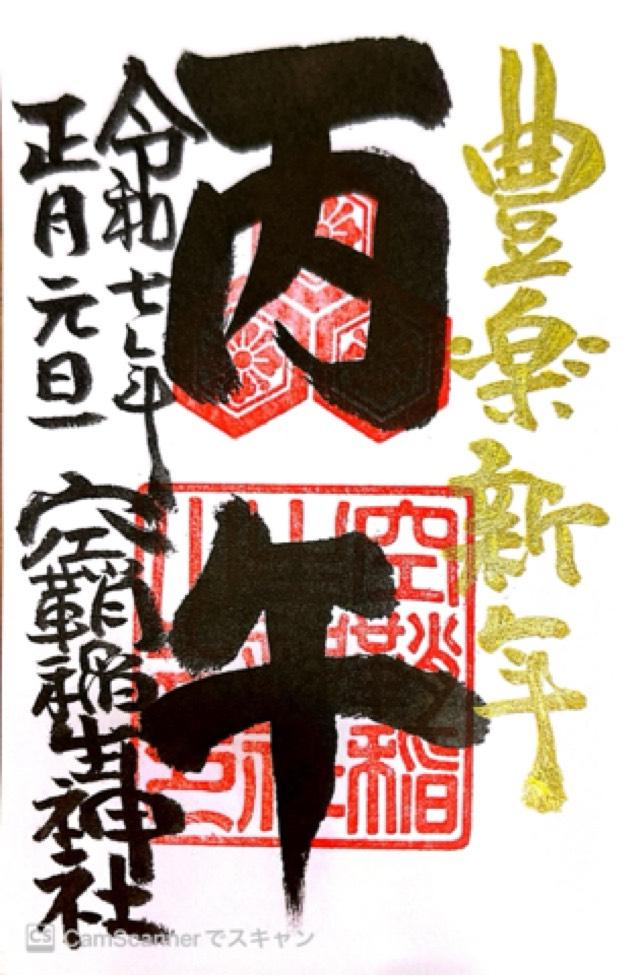 豊楽新年
丙午
令和七年
正月元旦
空鞘稲生神社
CS CamScannerでスキャン